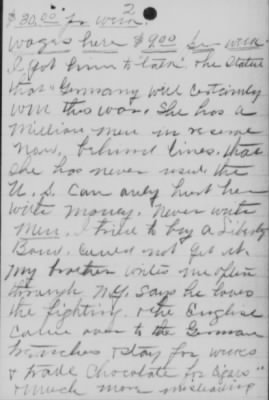 2
$30.00 for week.
Wages here $9.00 per week
I got him to talk. He stated
that Germany will certainly
win this war. She has a
million men in reserve
now, behind lines, that
she has never used. the
U.S. can only hurt her
with money. Never with
Men. I tried to buy a Liberty
Bond. Could not get it.
My brother writes me often
through N.Y. Says he loves
the fighting. & the English
come over to the German
trenches & stay for weeks
& trade Chocolate for cigars"
& much more misleading